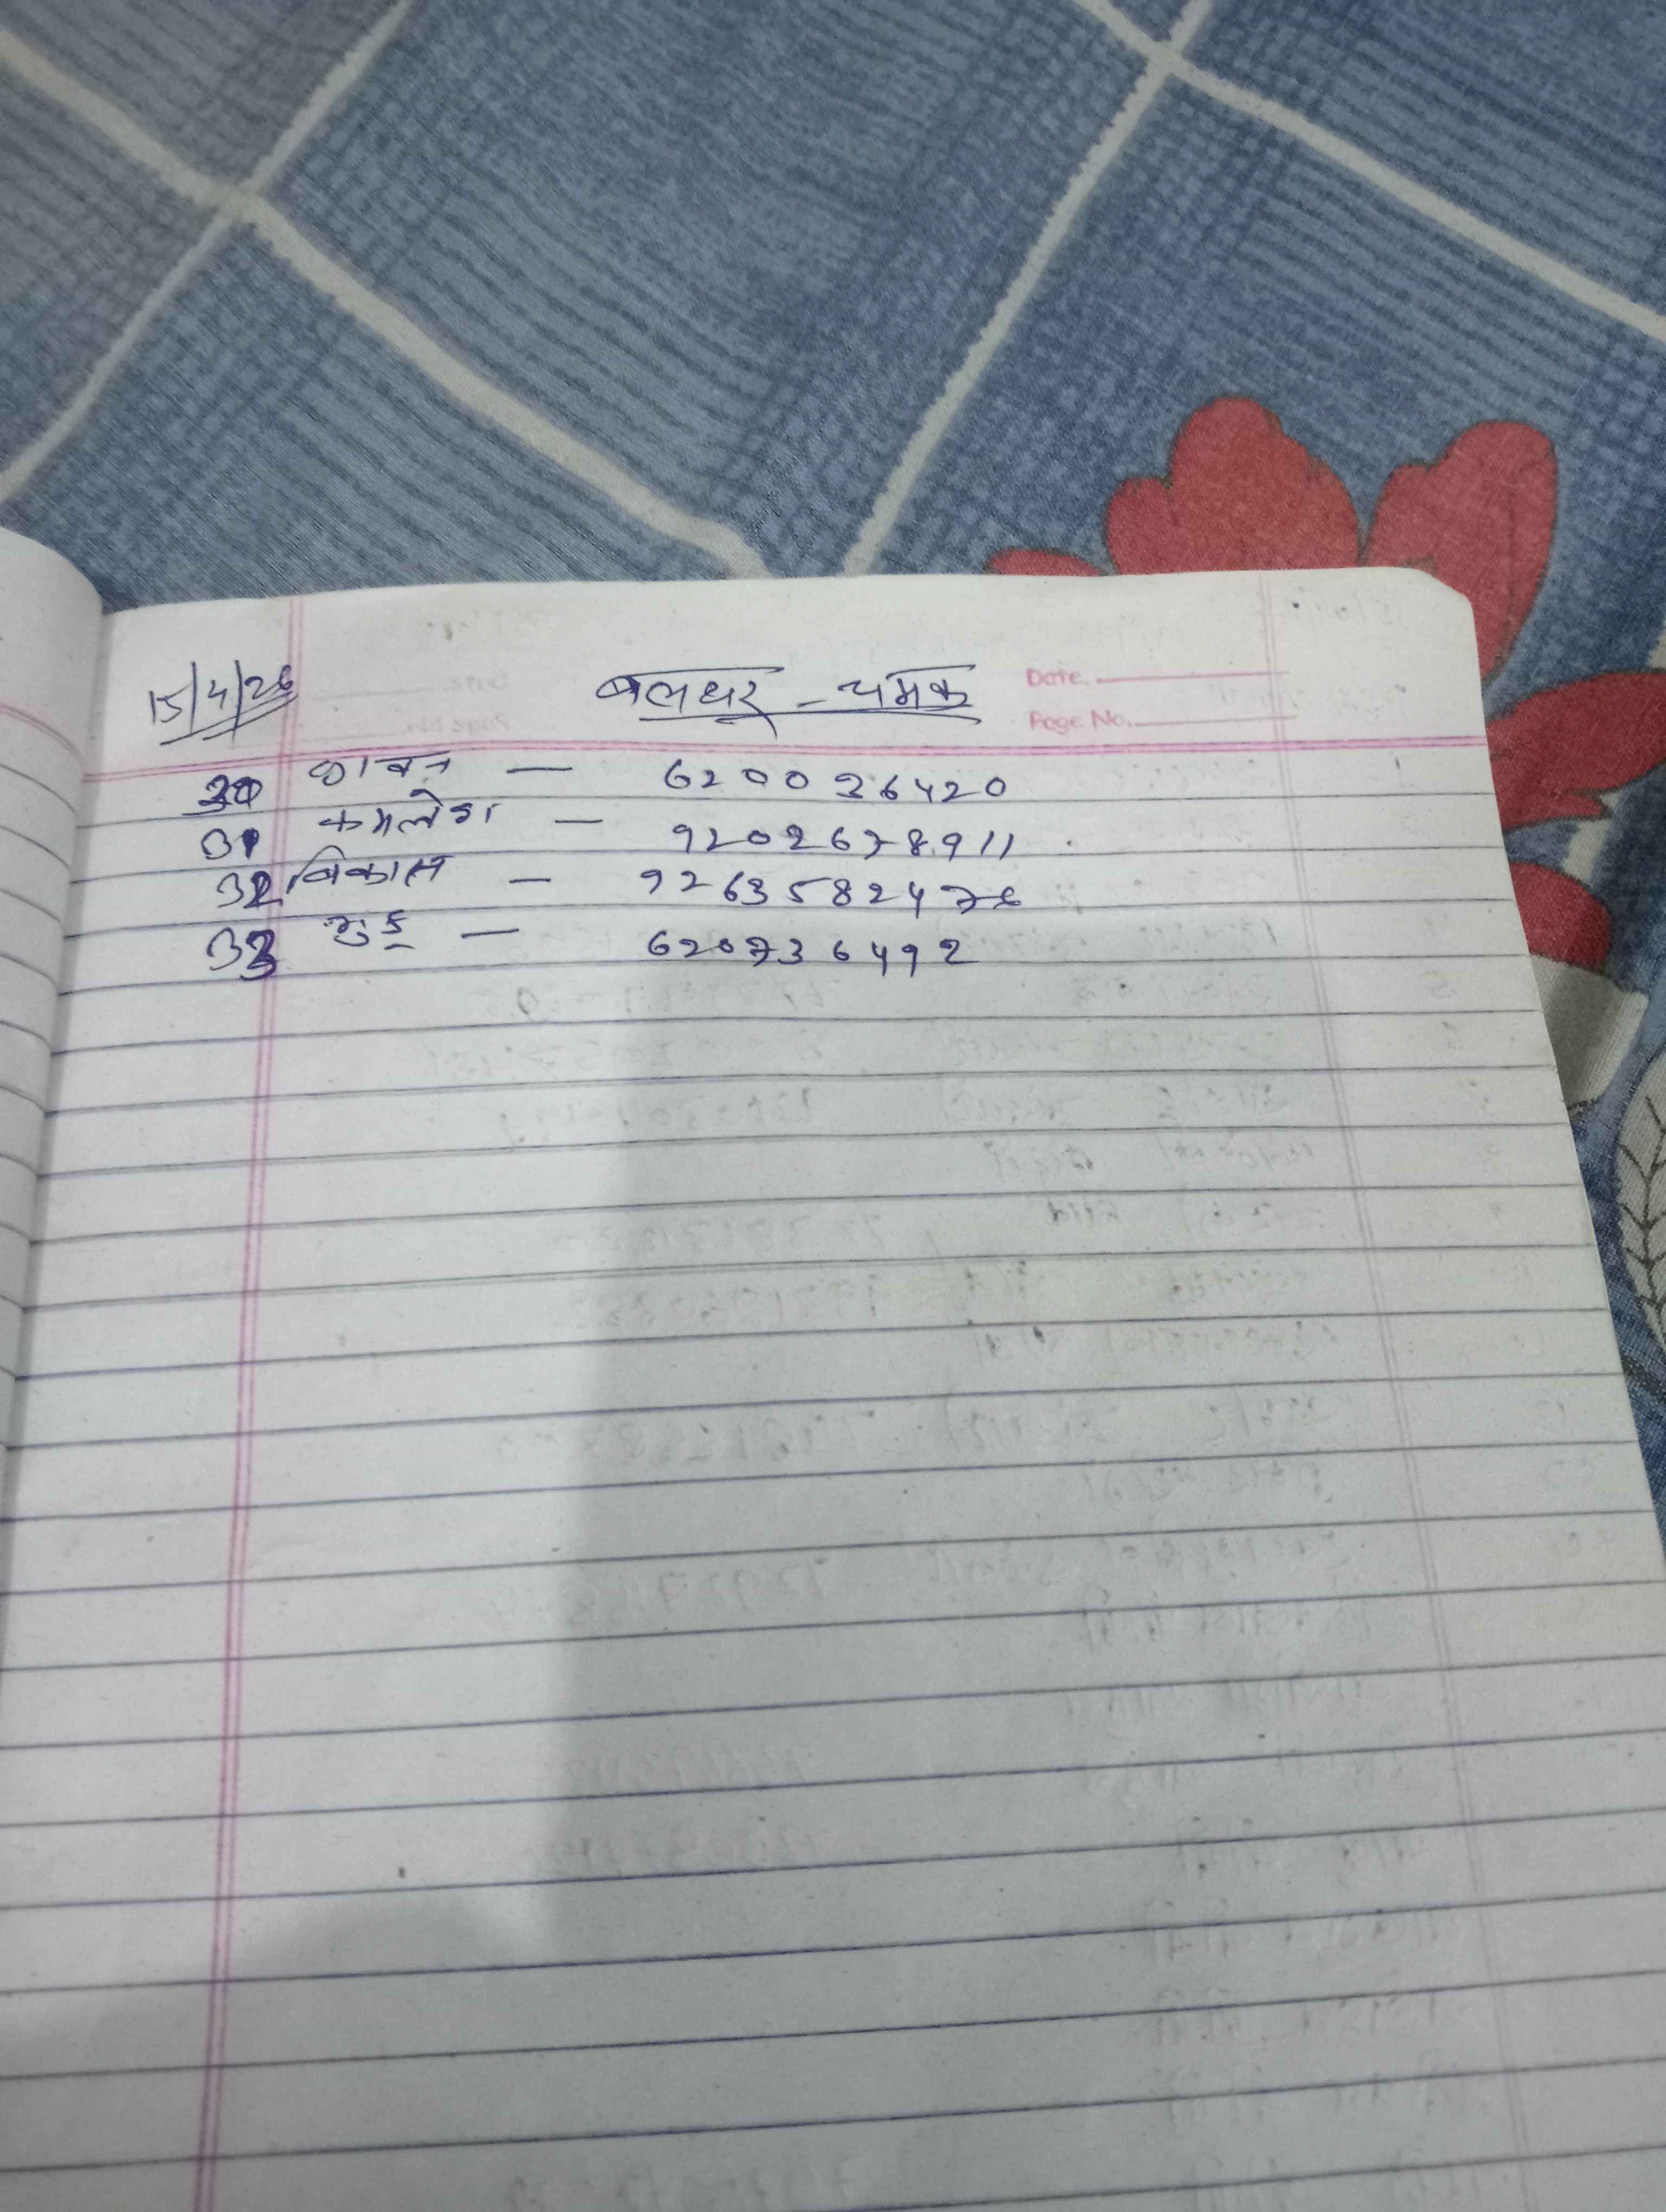 15/4/26
बलधर - चमक
Date.
Page No.
30 — 6200 26420
31 कमलेश — 9202678911
32 विकास — 9263582476
33 — 620736492